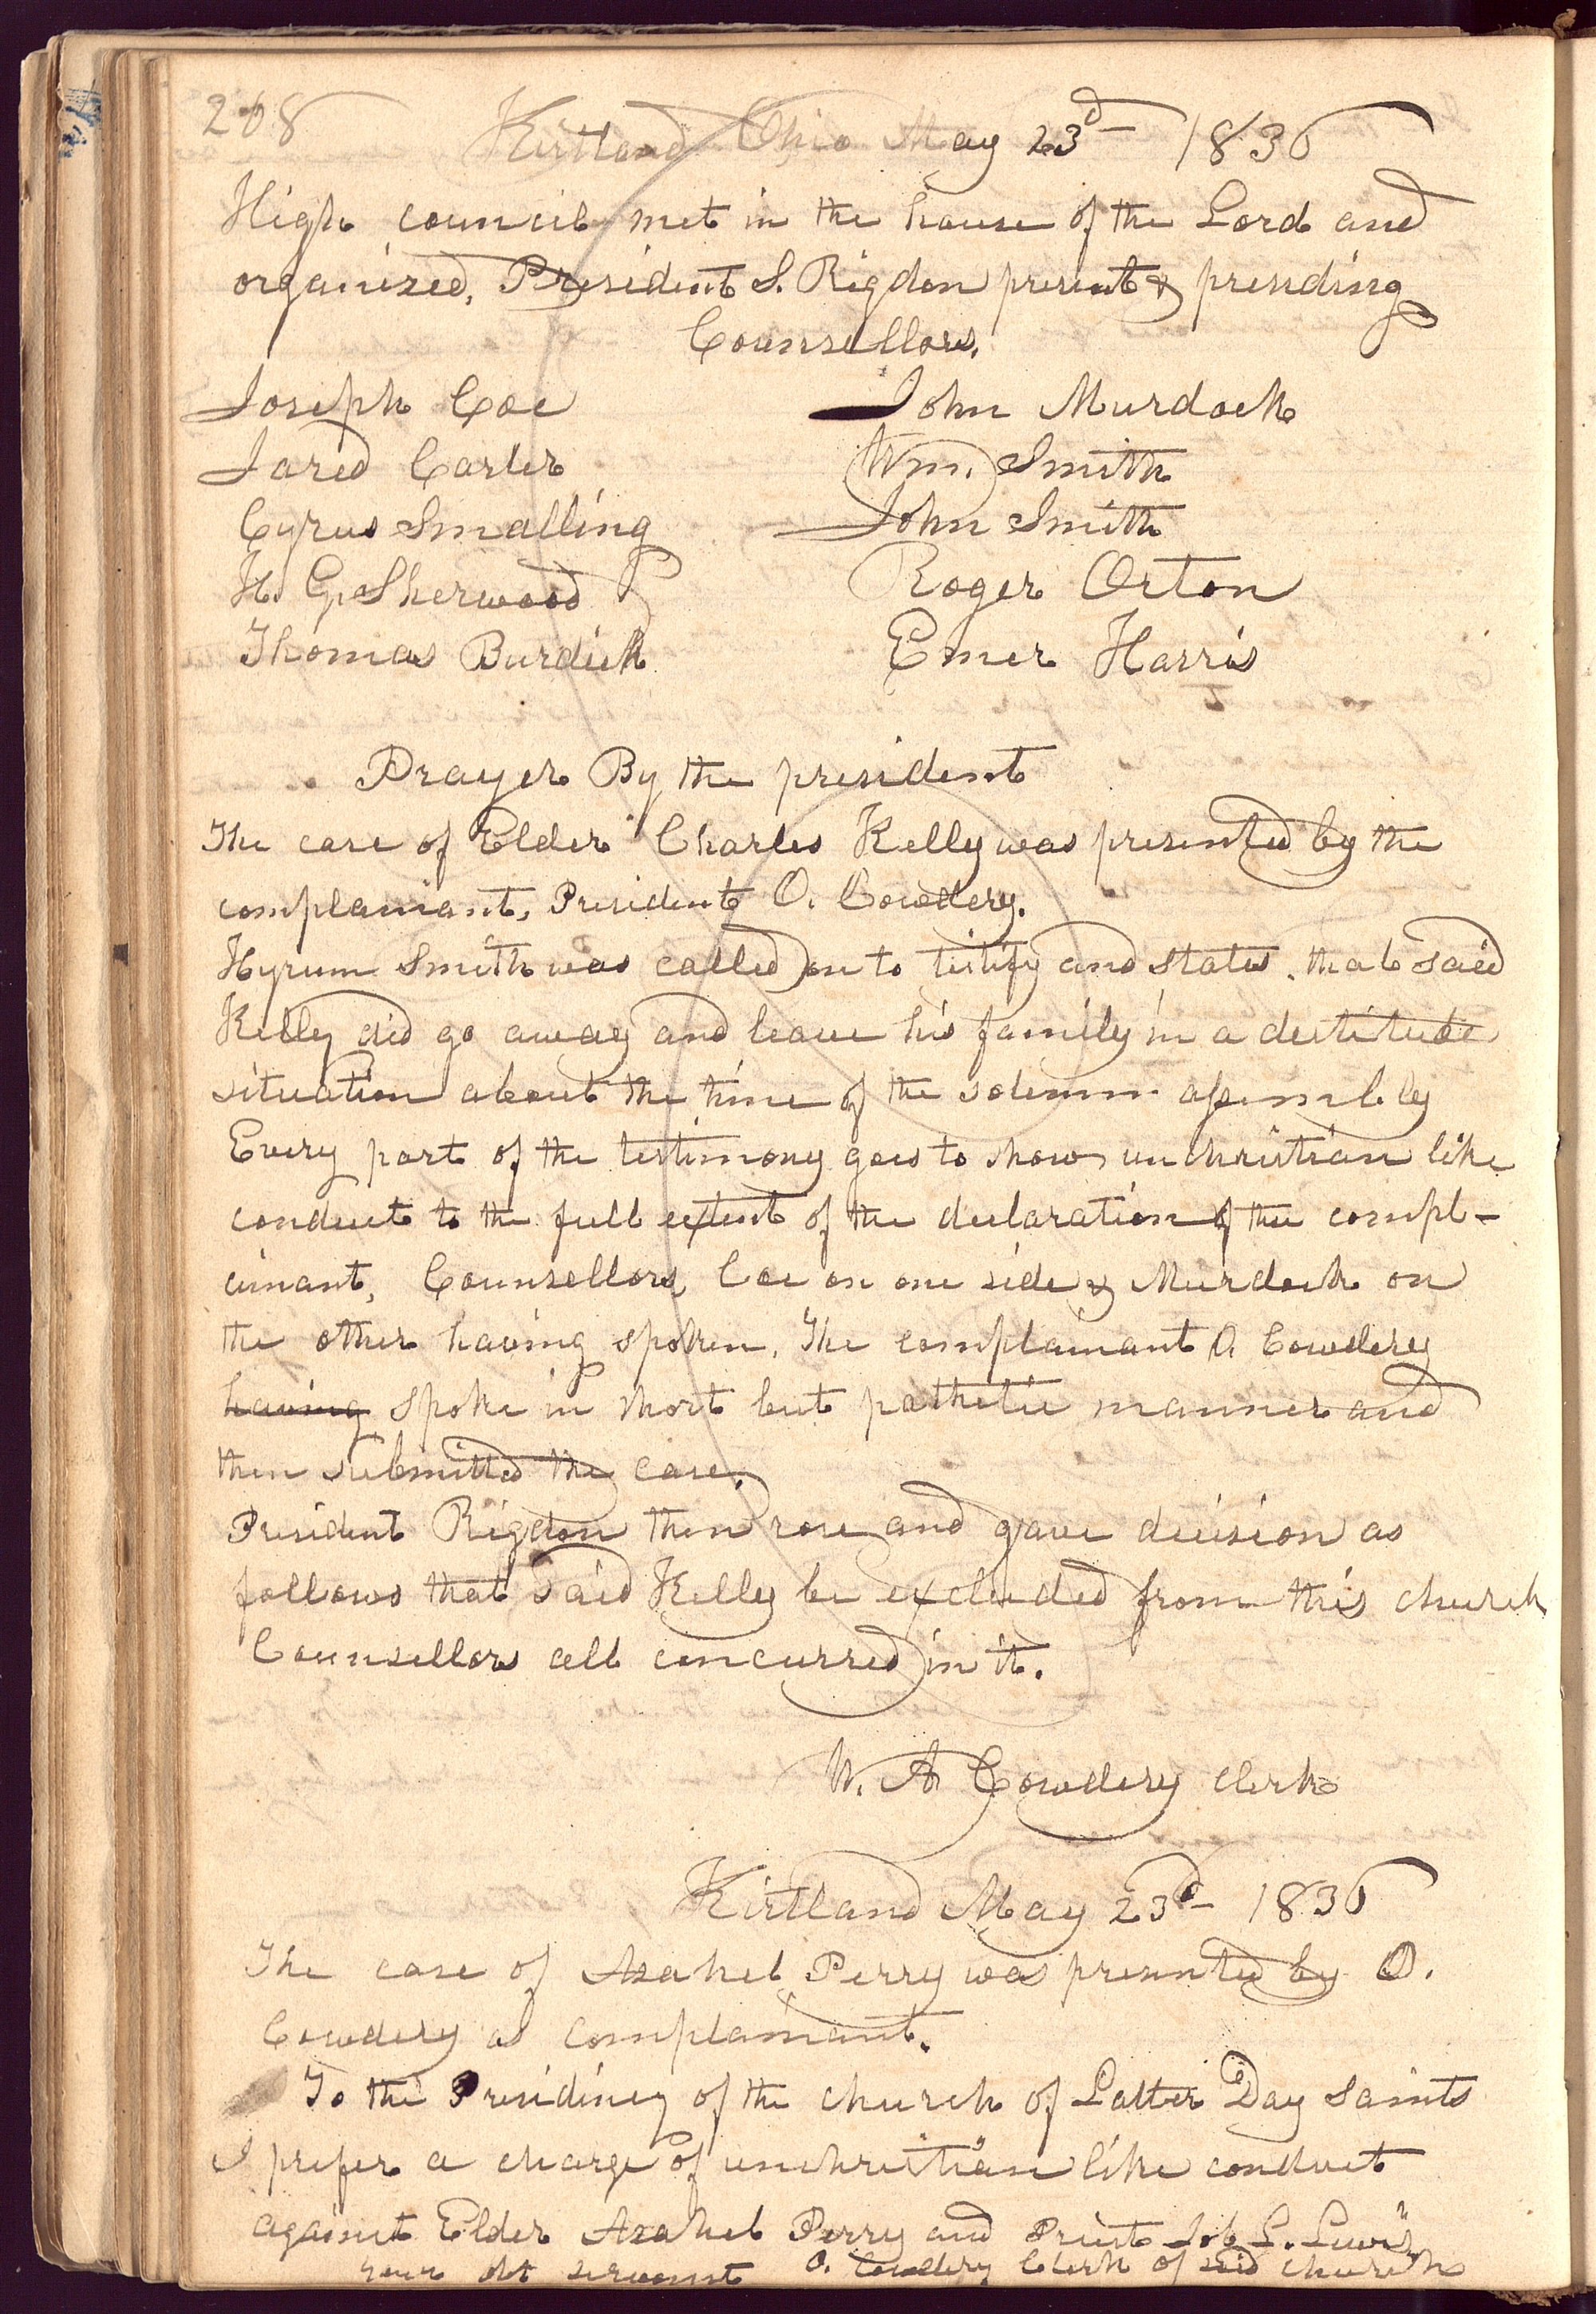 208
Kirtland Ohio May 23d 1836
High council met in the house of the Lord and
organized, President S. Rigdon present & presiding
Counsellors.
Joseph Coe John Murdock
Jared Carter Wm. Smith
Cyrus Smalling John Smith
H. G. Sherwood Roger Orton
Thomas Burdick Emer Harris
Prayer By the president
The case of Elder Charles Kelly was presented by the
complainant, President O. Cowdery.
Hyrum Smith was called on to testify and states, that said
Kelly did go away and leave his family in a destitute
situation about the time of the solemn assembly
Every part of the testimony goes to show unchristian like
conduct to the full extent of the declaration of the compl-
ainant, Counsellors, Coe on one side & Murdock on
the other having spoken. The complainant O. Cowdery
having spoke in short but pathetic manner and
then submitted the case.
President Rigdon then rose and gave decision as
follows that said Kelly be excluded from this church
Counsellors all concurred in it.
W. A Cowdery Clerk
Kirtland May 23d 1836
The case of Asahel Perry was presented by O.
Cowdery as complainant.
To the Presidincy of the church of Latter Day Saints
I prefer a charge of unchristian like conduct
against Elder Asahel Perry and Priest Job L. Lewis,
your obt servant O. Cowdery Clerk of said church